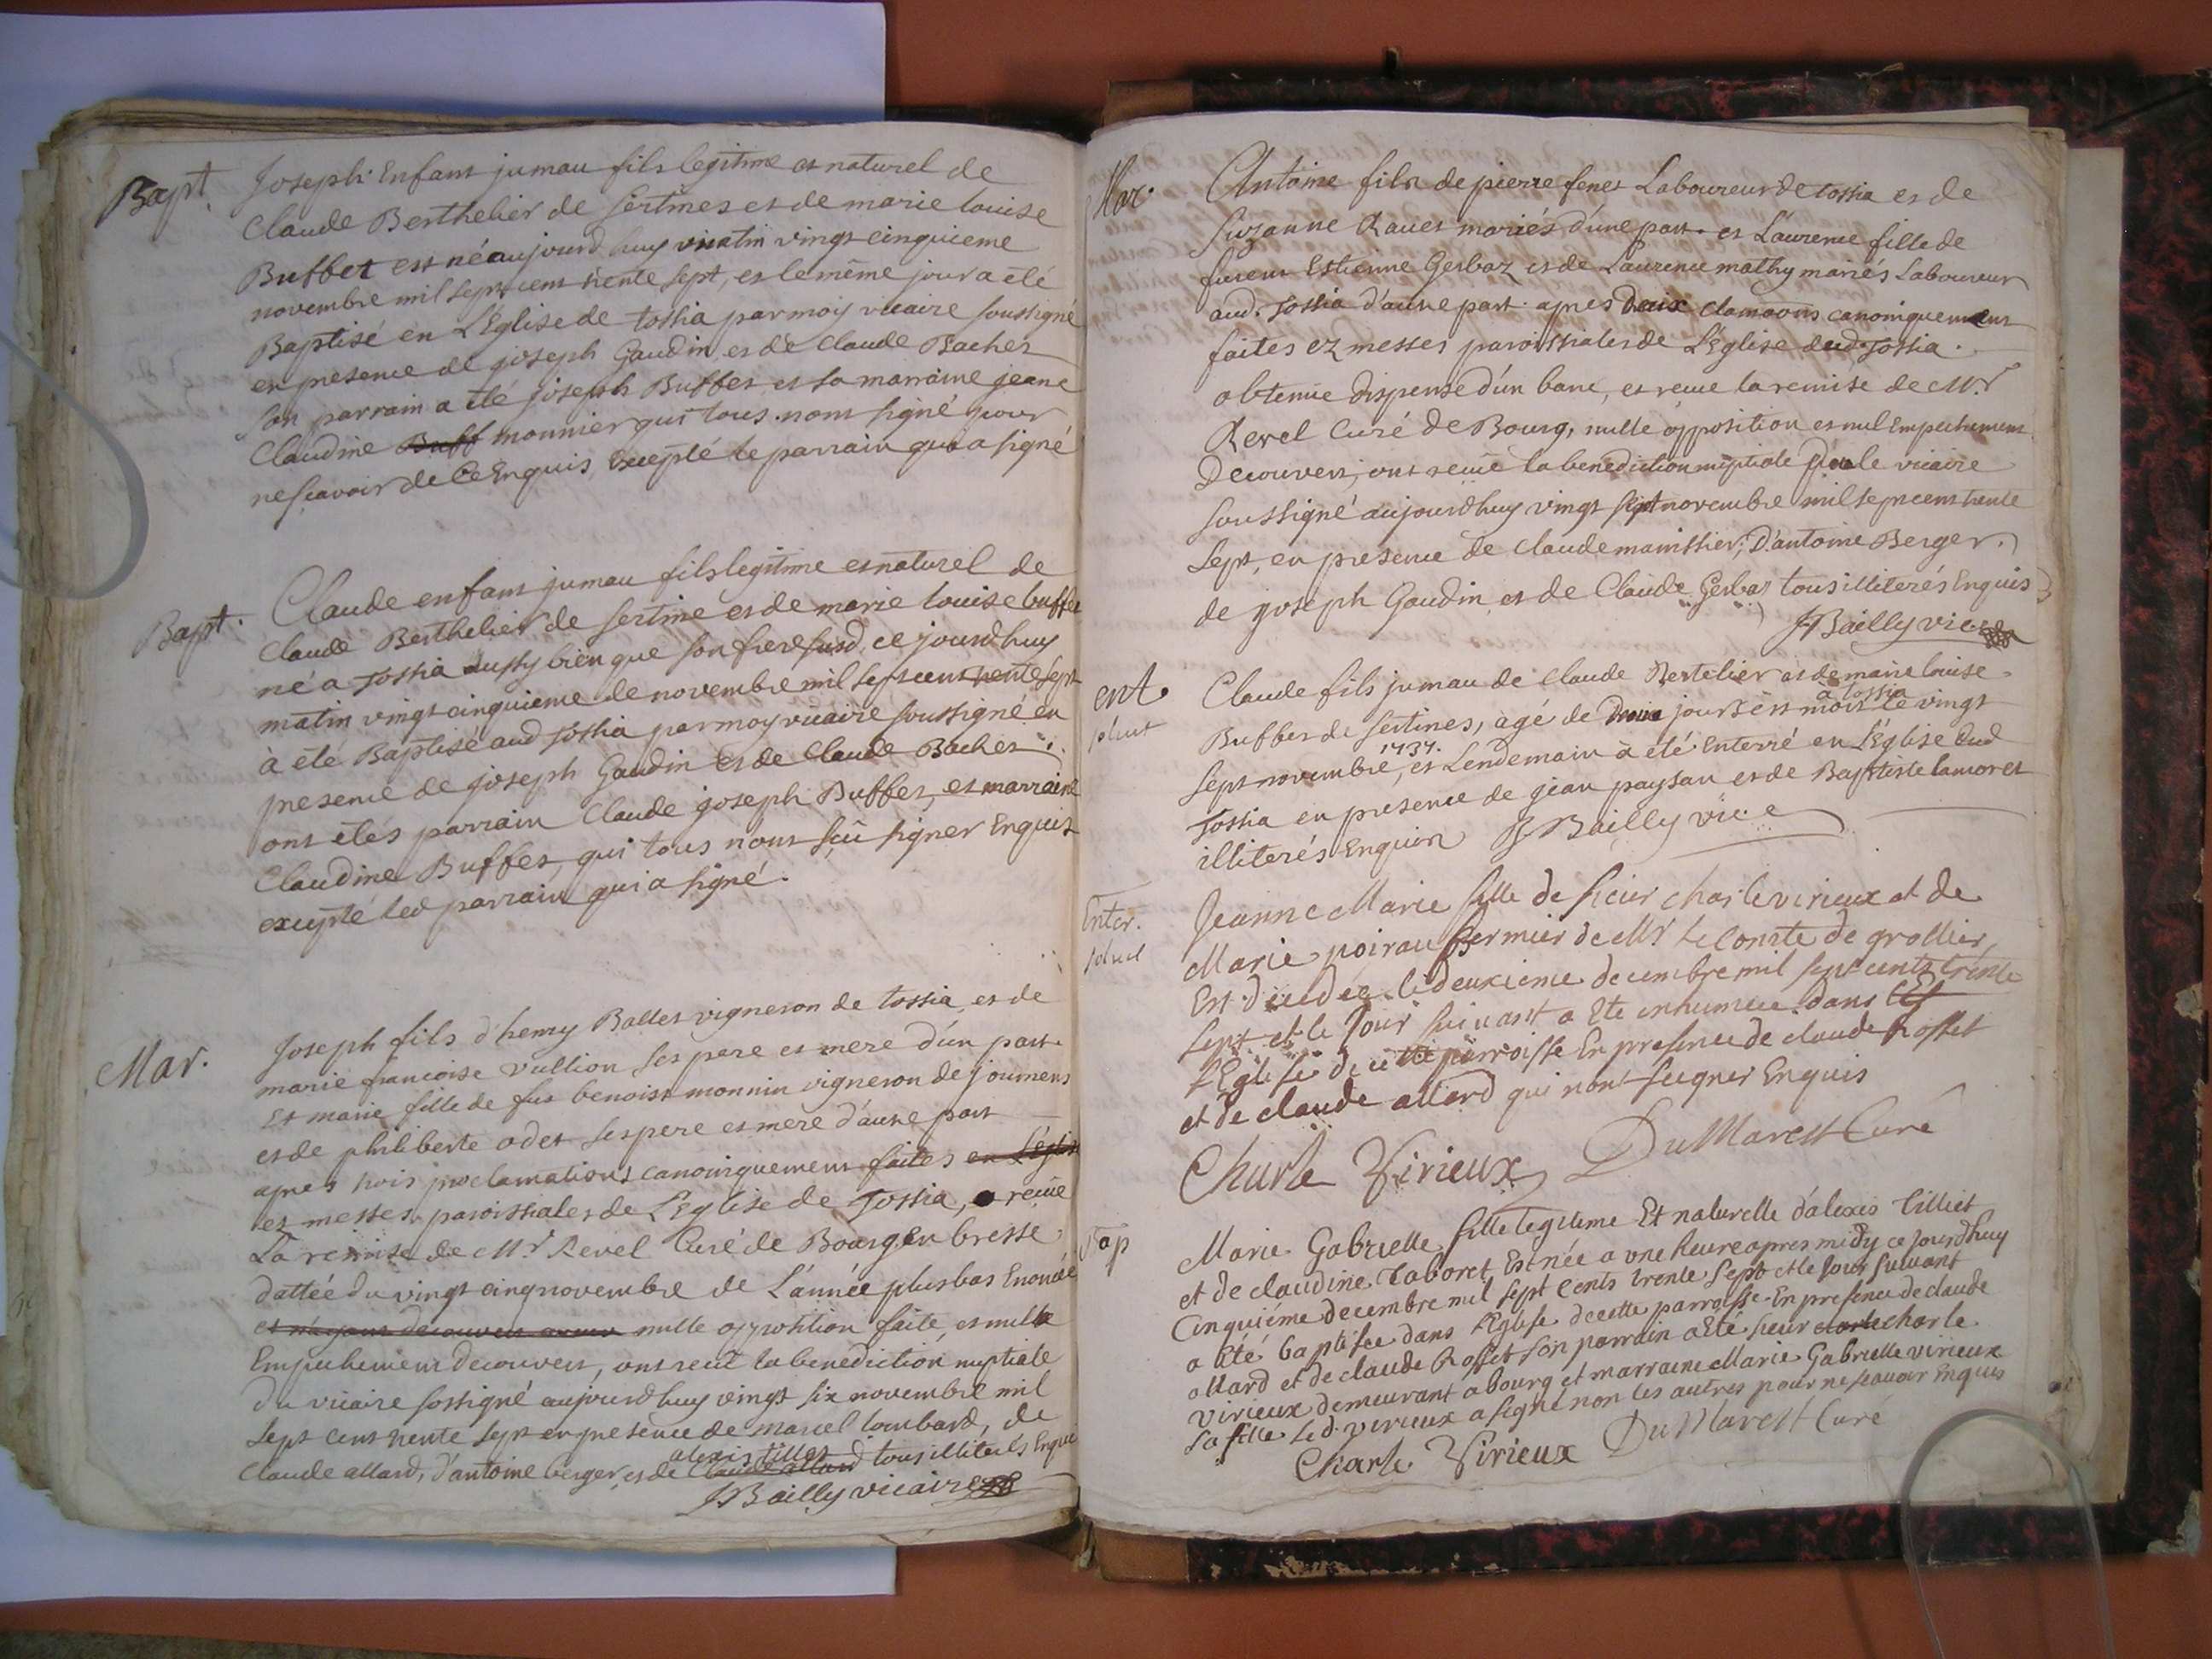 Bapt. Joseph Enfant jumau fils legitime et naturel de
Claude Berthelier de sertines et de marie louise
Buffet est né aujourd huy matin vingt cinquieme
novembre mil sept cent trente sept, et le même jour a été
Baptisé en L'Eglise de tossia par moy vicaire soussigné
en presence de joseph Gaudin et de claude Bachet
son parrain a été joseph Buffet et sa marraine jeane
Claudine Buff monnier qui tous nont signé pour
ne scavoir de ce Enquis excepté le parrain qui a signé
Bapt. Claude enfant jumau fils legitime et naturel de
Claude Berthelier de sertine et de marie louise buffet
né a Tossia aussy bien que son frere susd. ce jourdhuy
matin vingt cinquieme de novembre mil sept cent trente sept
à été Baptisé aud Tossia par moy vicaire soussigné en
presence de joseph Gaudin et de Claude Bachet.
ont étés parrain Claude joseph Buffet, et marraine
Claudine Buffet, qui tous nont scû signer Enquis
excepté led parrain qui a signé.
Mar. Joseph fils d'henry Ballet vigneron de tossia, et de
marie francoise vullion ses pere et mere d'un part
Et marie fille de fut benoist monnin vigneron de joumens
et de philiberte odet ses pere et mere d'autre part
apres trois proclamations canoniquement faites en L'eglise
ez messes paroissiales de L'Eglise de Tossia, receüe
La remise de Mr Revel Curé de Bourg en bresse
dattée du vingt cinq novembre de L'année plus bas Enoncée
et n'ayant decouvert aucun nulle opposition faite, et nulle
Empechement decouvert, ont receu la benediction nuptiale
du vicaire sossigné aujourdhuy vingt six novembre mil
sept cent trente sept en presence de marcel lombard, de
alexis tillet
Claude allard, d'antoine berger, et de Claude allard tous illiterés Enquis
JBailly vicaire
Mar. Antoine fils de pierre fenet Laboureur de tossia et de
suzanne Ravet mariés d'une part. et Laurence fille de
furent Estienne Gerbaz et de Laurence mathy mariés Laboureur
aud. Tossia d'autre part. apres deux clamaons canoniquement
faites ez messes paroissiales de L'Eglise dud. Tossia.
obtenüe dispense d'un banc, et receue la remise de Mr.
Revel Curé de Bourg, nulle opposition et nul Empechement
Decouvert, ont receüe la benediction nuptiale par le vicaire
soussigné aujourdhuy vingt sept novembre mil sept cent trente
sept, en presence de Claude mainssier, D'antoine Berger.
de joseph Gaudin et de Claude Gerbaz tous illiterés Enquis
JBailly vice
ent. Claude fils jumau de Claude Bertelier et de marie louise
a tossia
Buffet de sertines, agé de trois jours est mort le vingt
1737.
sept novembre, et Lendemain à été Enterré en L'Eglise dud
Tossia en presence de jean paysan et de Baptiste lamoret
illiterés Enquis JBailly vice
Enter. Jeanne Marie fille de sieur charle virieux et de
Marie poirau fermier de Mr le Comte de grollier,
Est decedée le deuxieme decembre mil sept cents trente
sept et le jour suivant a ete inhumée dans l'Eg
l'Eglise de cette parroisse En presence de claude Rosset
et de claude allard qui nont sceu signer Enquis
Charle Virieux DuMarest Curé
Bap Marie Gabrielle fille legitime Et naturelle d'alexis Tilliet
et de claudine Taboret Est née a une heure apres midy ce jourdhuy
Cinquiéme decembre mil sept cents trente sept et le jour suivant
a été baptisée dans l'Eglise de cette parroisse En presence de claude
allard et de claude Rosset son parrain a Eté sieur charle
virieux demeurant a bourg et marraine Marie Gabrielle virieux
sa fille led. virieux a signé non les autres pour ne scavoir Enquis
Charle Virieux DuMarest Curé